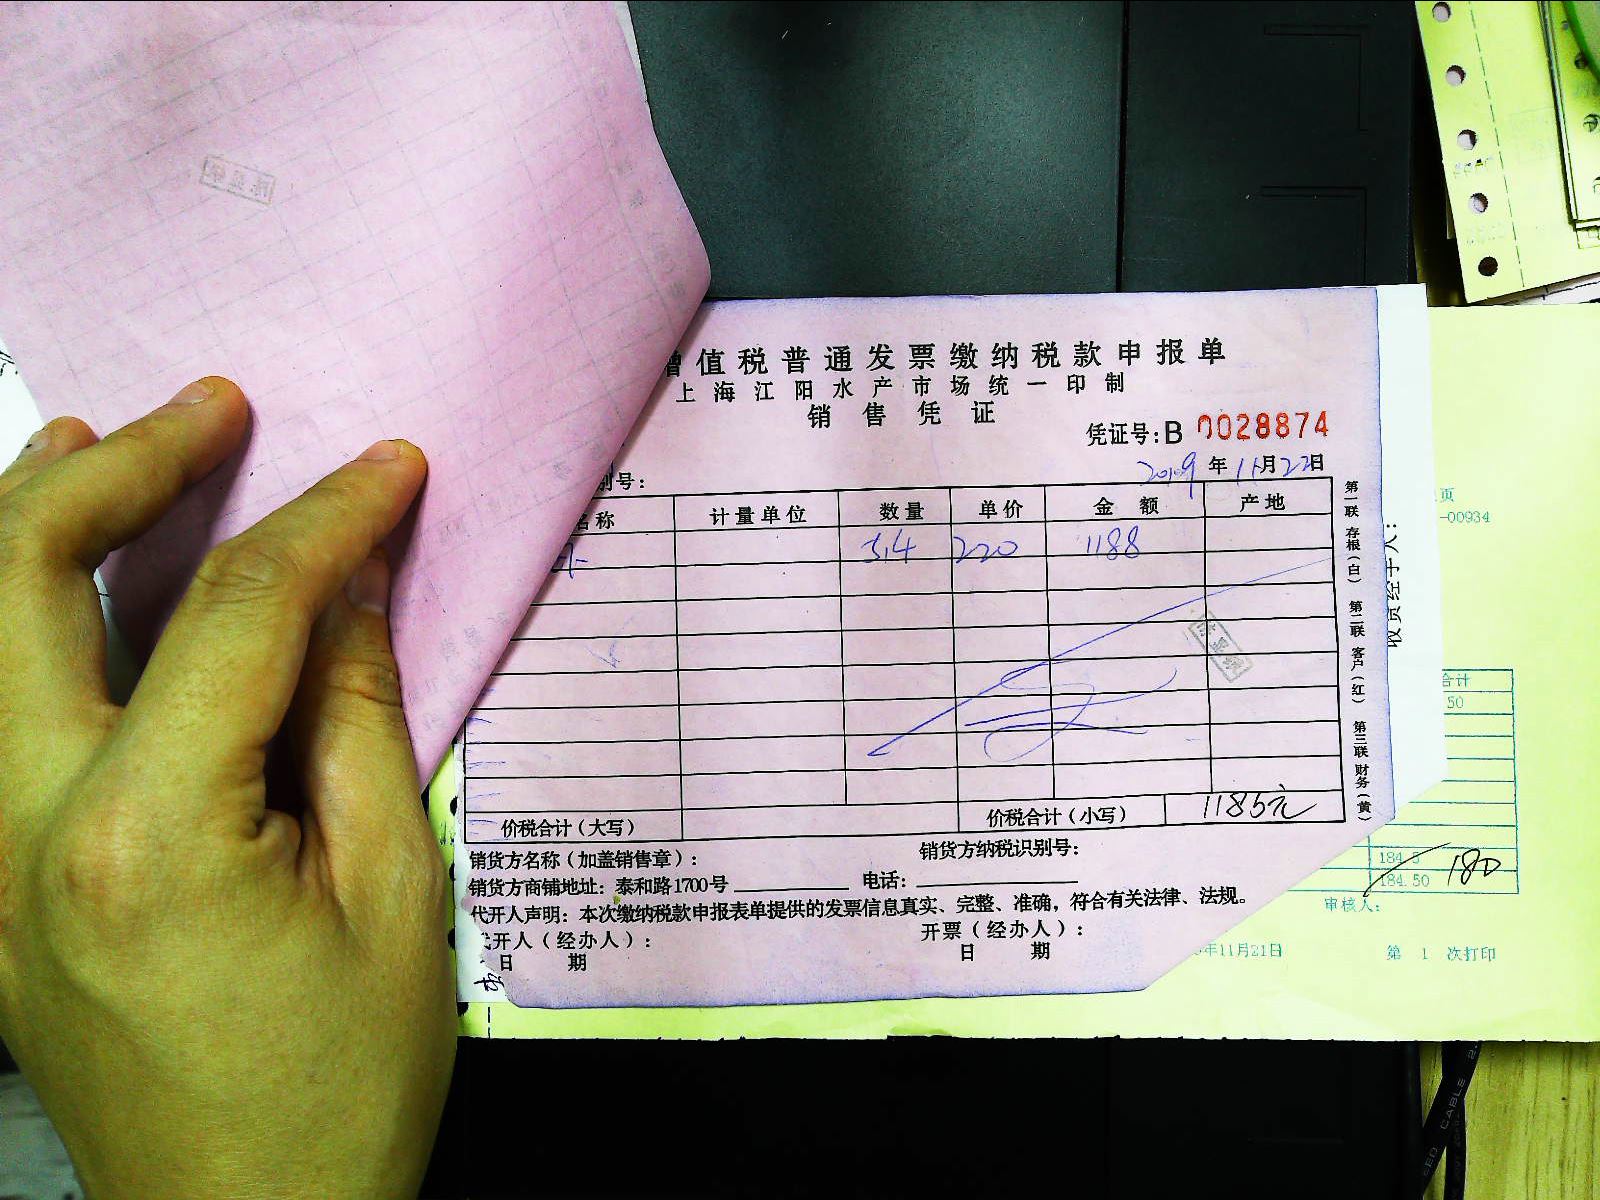 增值税普通发票缴纳税款申报单
上海江阳水产市场统一印制
销售凭证
凭证号:B 0028874
2019年11月22日
别号:
名称 计量单位 数量 单价 金额 产地
5.4 220 1188
价税合计(大写) 价税合计(小写) 1185元
销货方名称(加盖销售章): 销货方纳税识别号:
销货方商铺地址: 泰和路1700号 电话:
代开人声明: 本次缴纳税款申报表单提供的发票信息真实、完整、准确,符合有关法律、法规。
代开人(经办人): 开票(经办人):
日 期 日 期
第一联 存根(白) 第二联 客户(红) 第三联 财务(黄)
收货经手人:
页
-00934
合计
50
184.5
184.50 180
审核人:
年11月21日 第 1 次打印
CABLE